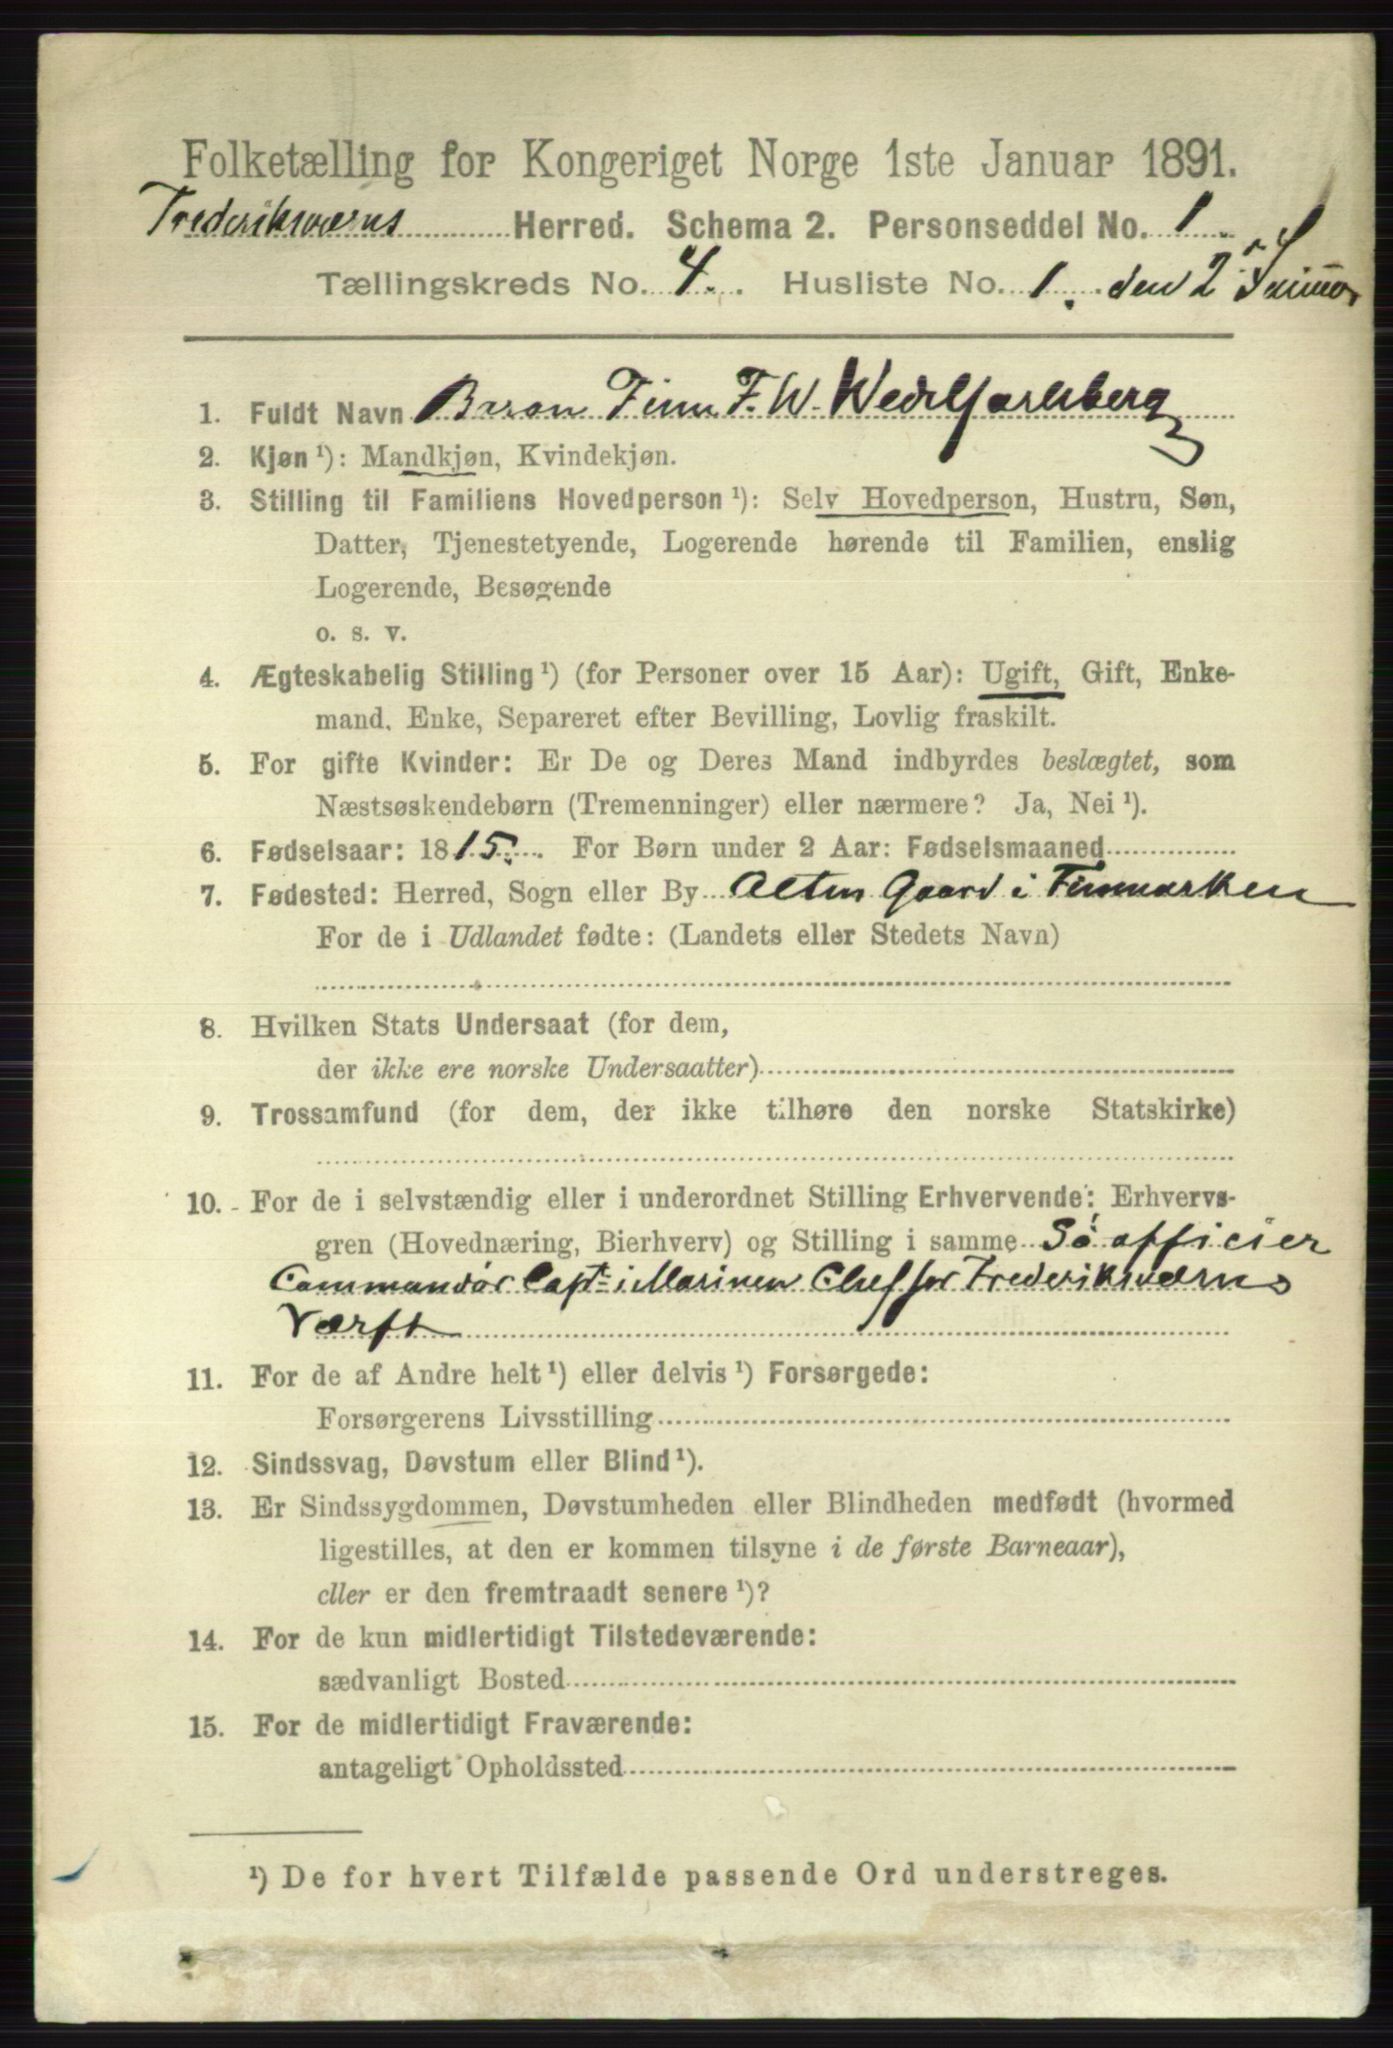 Folketælling for Kongeriget Norge 1ste Januar 1891.
Frederiksværns Herred. Schema 2. Personseddel No. 1.
Tællingskreds No. 4. Husliste No. 1. den 2
1. Fuldt Navn Baron Finn F. W. Wedel Jarlsberg
2. Kjøn ¹): Mandkjøn, Kvindekjøn.
3. Stilling til Familiens Hovedperson ¹): Selv Hovedperson, Hustru, Søn,
Datter, Tjenestetyende, Logerende hørende til Familien, enslig
Logerende, Besøgende
o. s. v.
4. Ægteskabelig Stilling ¹) (for Personer over 15 Aar): Ugift, Gift, Enke-
mand, Enke, Separeret efter Bevilling, Lovlig fraskilt.
5. For gifte Kvinder: Er De og Deres Mand indbyrdes beslægtet, som
Næstsøskendebørn (Tremenninger) eller nærmere? Ja, Nei ¹).
6. Fødselsaar: 1815. For Børn under 2 Aar: Fødselsmaaned
7. Fødested: Herred, Sogn eller By Alten Gaard i Finmarken
For de i Udlandet fødte: (Landets eller Stedets Navn)
8. Hvilken Stats Undersaat (for dem,
der ikke ere norske Undersaatter)
9. Trossamfund (for dem, der ikke tilhøre den norske Statskirke)
10. For de i selvstændig eller i underordnet Stilling Erhvervende: Erhvervs-
gren (Hovednæring, Bierhverv) og Stilling i samme Söofficier
Commandör Capt. i Marinen Chef for Frederiksværns
Værft
11. For de af Andre helt ¹) eller delvis ¹) Forsørgede:
Forsørgerens Livsstilling
12. Sindssvag, Døvstum eller Blind ¹).
13. Er Sindssygdommen, Døvstumheden eller Blindheden medfødt (hvormed
ligestilles, at den er kommen tilsyne i de første Barneaar),
eller er den fremtraadt senere ¹)?
14. For de kun midlertidigt Tilstedeværende:
sædvanligt Bosted
15. For de midlertidigt Fraværende:
antageligt Opholdssted
¹) De for hvert Tilfælde passende Ord understreges.